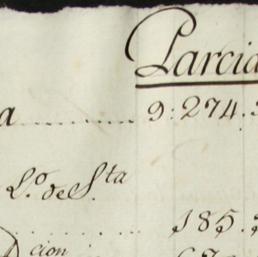 Parcia
a 9:274.
L.º de S.ta
185.
cion